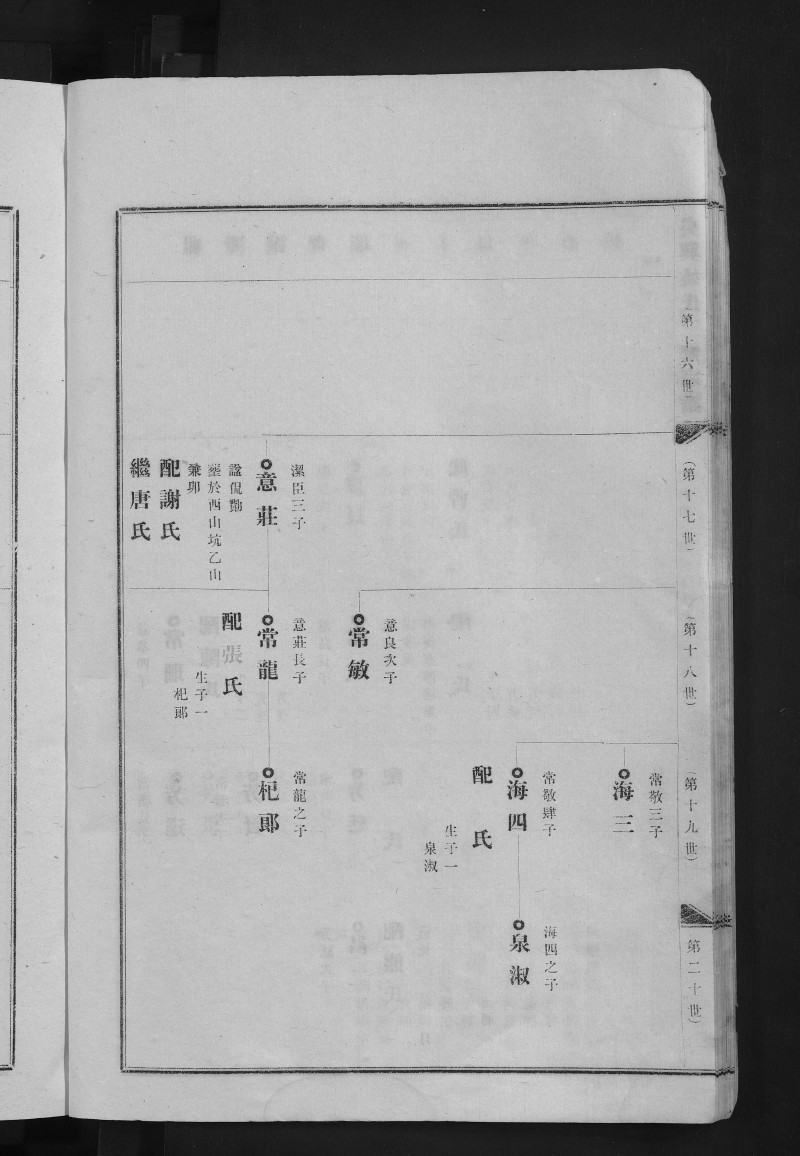 第十六世
（第十七世）
潔臣三子
意莊
諡侃勤
塟於西山坑乙山
兼卯
配謝氏
繼唐氏
（第十八世）
意良次子
常敏
意莊長子
常龍
配張氏
生子一
杞郎
（第十九世）
常敬三子
海三
常敬肆子
海四
配　氏
生子一
泉淑
常龍之子
杞郎
第二十世）
海四之子
泉淑